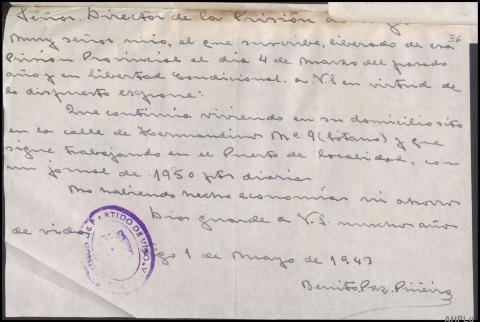 Señor. Director de la Prisión de
36
Muy señor mio, el que suscribe, liberado de esa
Prision Provincial el dia 4 de Marzo del pasado
año y en libertad Condicional. a V.S en virtud de
lo dispuesto expone:
Que continua viviendo en su domicilio sito
en la calle de Hermandino Nº 9 (sotano) y que
sigue trabajando en el Puerto de localidad, con
un jornal de 19'50 ptas diarias
No haliendo hecho economias ni ahorros
Dios guarde a V.S. muchos años
de vida Vigo 1 de Mayo de 1943
Benito Paz Piñeiro
PARTIDO DE VIGO
AHPLu